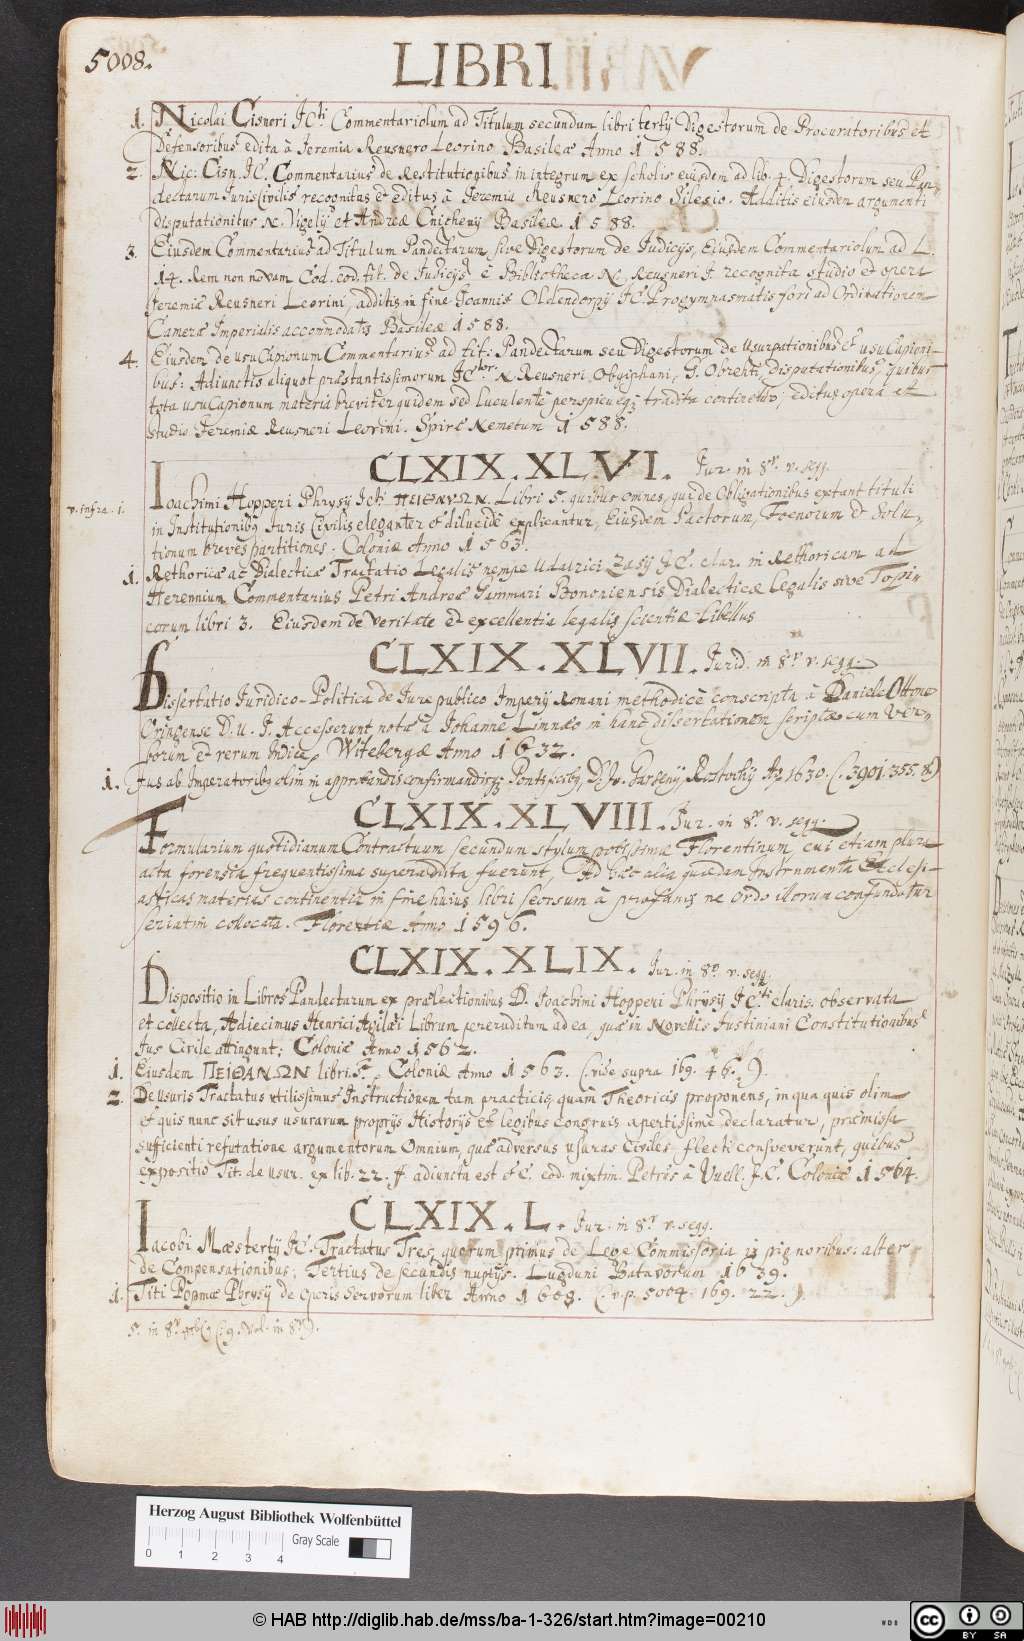 5008.
LIBRI
1. Nicolai Cisneri JCti Commentariolum ad Titulum secundum libri tertij Digestorum de Procuratoribus et
Defensoribus edita à Jeremia Reusnero Leorino Basileæ Anno 1588.
2. Nic: Cisn. JC. Commentarius de Restitutionibus in integrum ex scholis eiusdem ad lib. 4. Digestorum seu Pan-
dectarum Juris Civilis recognitus et editus à Jeremia Reusnero Leorino Silesio. Additis eiusdem argumenti
disputationibus N. Vigelij et Andreæ Cnichenij Basileæ 1588.
3. Eiusdem Commentarius ad Titulum Pandectarum sive Digestorum de Judicijs, Eiusdem Commentariolum ad L.
14. Rem non novam Cod. eod. tit. de Judicijs è Bibliotheca N. Reusneri J. recognita studio et opera
Jeremiæ Reusneri Leorini, additis in fine Joannis Oldendorpij JC. Progymnasmatis fori ad Ordinationem
Cameræ Imperialis accommodatis Basileæ 1588.
4. Eiusdem de usu Capionum Commentarius ad tit: Pandectarum seu Digestorum de Usurpationibus et usu Capioni-
bus: Adiunctis aliquot præstantissimorum JCtor. N. Reusneri, Obgiphani, G. Obrehti, disputationibus, quibus
tota usu Capionum materia breviter quidem sed luculente perspicueq; tradita continetur, editus opera et
studio Jeremiæ Reusneri Leorini. Spiræ Nemetum 1588.
CLXIX. XLVI. Jur. in 8º. v. segg.
v. infra. 1. Ioachimi Hopperi Phrysij JCti ΠΕΙΘΑΝΩΝ. Libri 5. quibus omnes, qui de Obligationibus extant tituli
in Institutionibus Juris Civilis eleganter et dilucide explicantur, Eiusdem Pactorum, Foenorum et Solu-
tionum breves partitiones. Coloniæ Anno 1563.
1. Rethoricæ ac Dialecticæ Tractatio Legalis nempe Udalrici Zasij JC. clar. in Rethoricam ad
Herennium Commentarius Petri Andreæ Gammari Bononiensis Dialecticæ Legalis sive Topi-
corum libri 3. Eiusdem de Veritate et excellentia legalis scientiæ Libellus
CLXIX. XLVII. Jurid. in 8º v. segg.
Dissertatio Juridico-Politica de Jure publico Imperij Romani methodice conscripta à Daniele Ottone
Oringense D. U. J. Accesserunt notæ à Johanne Limnæo in hanc dissertationem scriptæ cum Ver-
borum et rerum Indice, Witebergæ Anno 1632.
1. Jus ab Imperatoribus olim in approbandis confirmandisq; Pontificibus, Rostochij Aº 1630. (: 390 | 355. 8.)
CLXIX. XLVIII. Jur. in 8º v. segg.
Formularium quotidianum Contractuum secundum stylum potissimæ Florentinum, cui etiam plura
acta forensia frequentissima superaddita fuerunt, Ad hæc alia quædam Instrumenta Ecclesi-
asticas materias continentia in fine huius libri seorsum à profanis ne ordo illorum confundatur
seriatim collocata. Florentiæ Anno 1596.
CLXIX. XLIX. Jur. in 8º. v. segg.
Dispositio in Libros Pandectarum ex prælectionibus D. Joachimi Hopperi Phrysij JCti claris. observata
et collecta, Adiecimus Henrici Agilæi Librum pereruditum ad ea, quæ in Novellis Justiniani Constitutionibus
Jus Civile attingunt; Coloniæ Anno 1562.
1. Eiusdem ΠΕΙΘΑΝΩΝ libri 5. Coloniæ Anno 1563. (: vide supra 169. 46. :)
2. De usuris Tractatus utilissimus Instructionem tam practicis, quam Theoricis proponens, in qua quis olim
et quis nunc sit usus usurarum proprijs Historijs et legibus congruis apertissime declaratur, præmissa
sufficienti refutatione argumentorum Omnium, quæ adversus usuras Civiles flecti consveverunt, quibus
expositio Tit. de usur. ex lib. 22. ff. adiuncta est eod. Petrus à JC. Coloniæ 1564.
CLXIX. L. Jur. in 8º v. segg.
Iacobi Mæstertij JC. Tractatus Tres, quorum primus de Lege Commissoria in pignoribus: alter
de Compensationibus; Tertius de secundis nuptijs. Lugduni Batavorum 1639.
1. Titi Popmæ Phrysij de operis servorum liber Anno 1608. (: v. p. 5004. 169. 22. :)
5. in 8º (: 9. Vol. in 8º :).
Herzog August Bibliothek Wolfenbüttel
Gray Scale
0 1 2 3 4
© HAB http://diglib.hab.de/mss/ba-1-326/start.htm?image=00210
WDB
cc BY SA